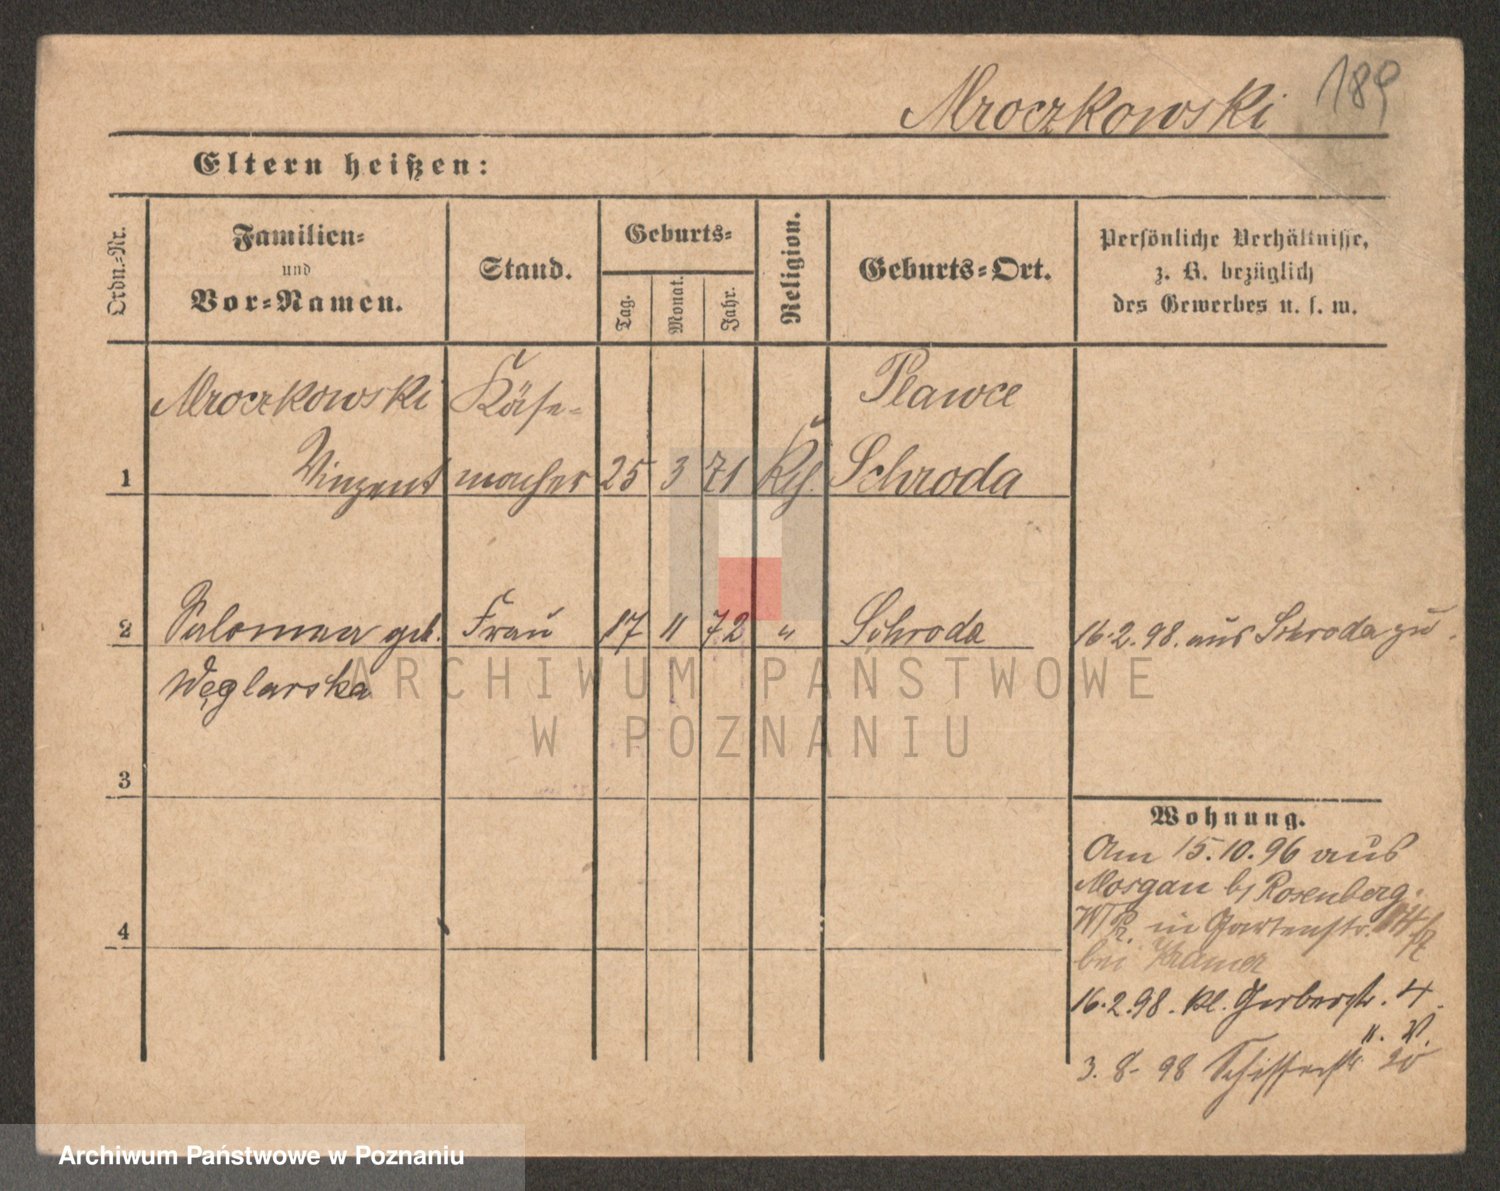 Mroczkowski 189
Eltern heißen:
Ordn.-Nr.
Familien-
und
Vor-Namen.
Stand.
Geburts-
Tag.
Monat.
Jahr.
Religion.
Geburts-Ort.
Persönliche Verhältnisse,
z. B. bezüglich
des Gewerbes u. s. w.
Mroczkowski Käse- Plawce
1 Vinzent macher 25 3 71 Kth. Schroda
2 Salomea geb. Frau 17 11 72 " Schroda 16.2.98. aus Schroda zu.
Węglarska
3
4
Wohnung.
Am 15.10.96 aus
Mosgau b/ Rosenberg.
W/Pr. in Gartenstr.
bei Kramer
16.2.98. kl. Gerberstr. 4.
3. 8. 98 Schifferstr. 20
ARCHIWUM PAŃSTWOWE
W POZNANIU
Archiwum Państwowe w Poznaniu